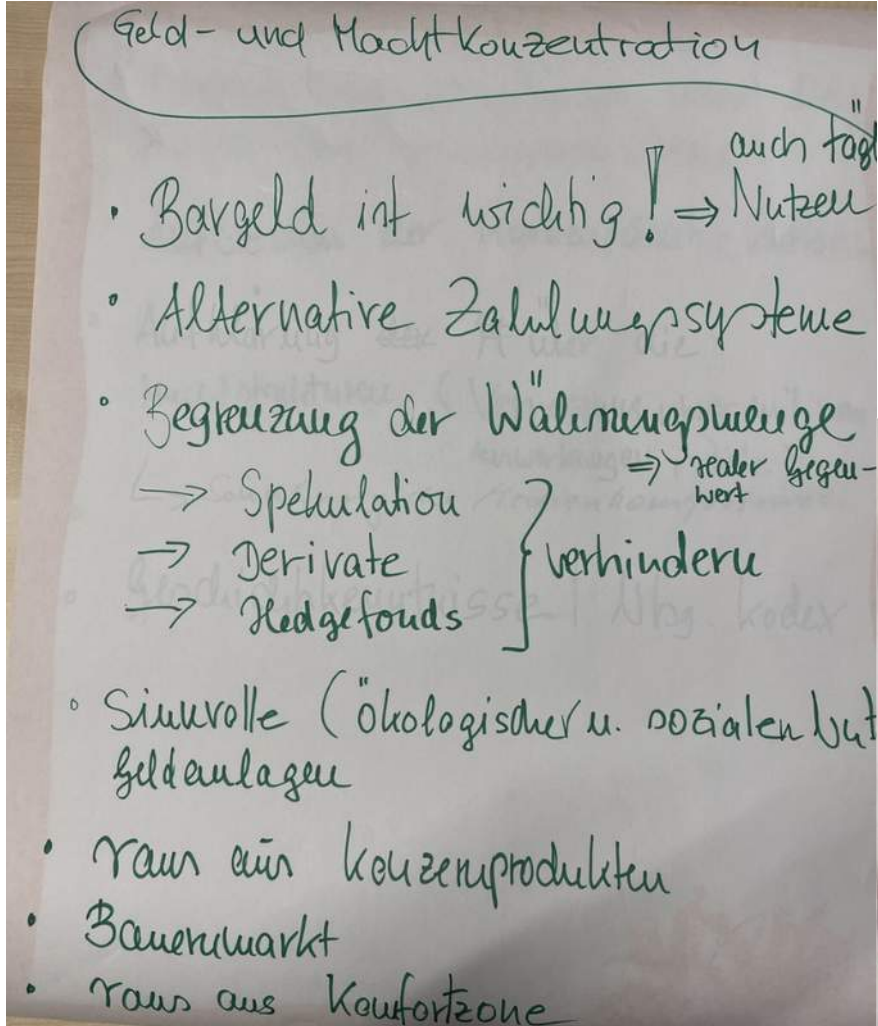 Geld- und Machtkonzentration
auch tägl
• Bargeld ist wichtig! ⇒ Nutzen
• Alternative Zahlungssysteme
• Begrenzung der Währungsmenge
⇒ realer Gegen-
wert
→ Spekulation
→ Derivate } verhindern
→ Hedgefonds
• Sinnvolle (ökologischer u. sozialen Nut
Geldanlagen
• raus aus Konzernprodukten
• Bauernmarkt
• raus aus Komfortzone